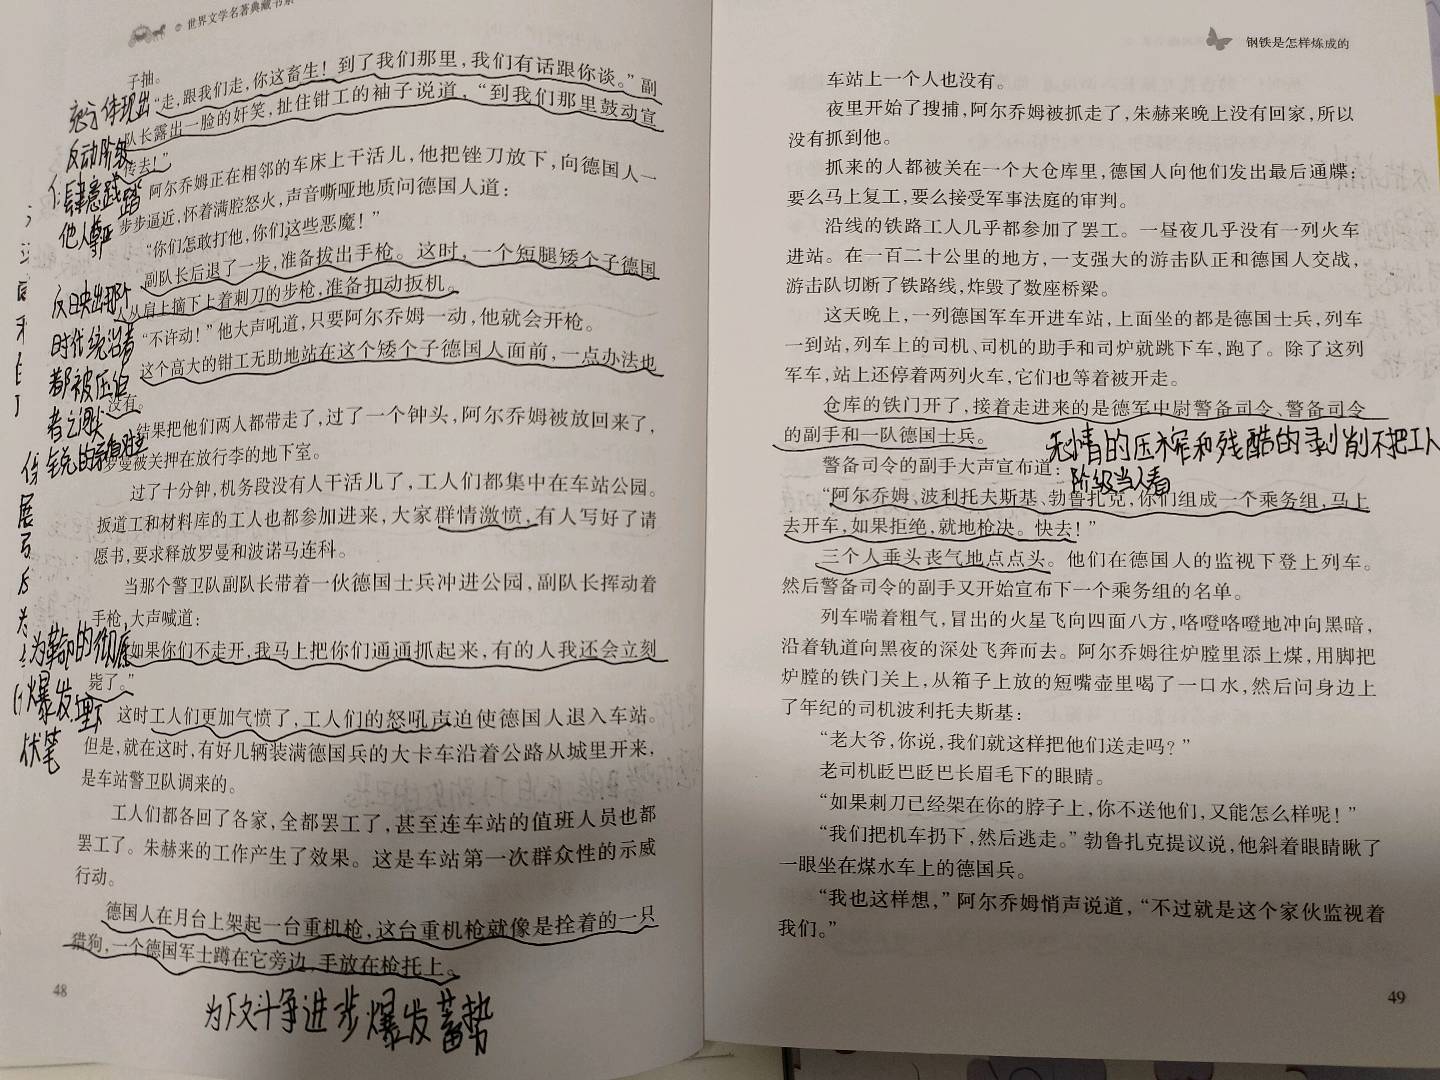 世界文学名著典藏书系
子抽。
“走，跟我们走，你这畜生！到了我们那里，我们有话跟你谈。”副
队长露出一脸的奸笑，扯住钳工的袖子说道，“到我们那里鼓动宣
传去！”
阿尔乔姆正在相邻的车床上干活儿，他把锉刀放下，向德国人一
步步逼近，怀着满腔怒火，声音嘶哑地质问德国人道：
“你们怎敢打他，你们这些恶魔！”
副队长后退了一步，准备拔出手枪。这时，一个短腿矮个子德国
人从肩上摘下上着刺刀的步枪，准备扣动扳机。
“不许动！”他大声吼道，只要阿尔乔姆一动，他就会开枪。
这个高大的钳工无助地站在这个矮个子德国人面前，一点办法也
没有。
结果把他们两人都带走了，过了一个钟头，阿尔乔姆被放回来了，
罗曼被关押在放行李的地下室。
过了十分钟，机务段没有人干活儿了，工人们都集中在车站公园。
扳道工和材料库的工人也都参加进来，大家群情激愤，有人写好了请
愿书，要求释放罗曼和波诺马连科。
当那个警卫队副队长带着一伙德国士兵冲进公园，副队长挥动着
手枪，大声喊道：
“如果你们不走开，我马上把你们通通抓起来，有的人我还会立刻
毙了。”
这时工人们更加气愤了，工人们的怒吼声迫使德国人退入车站。
但是，就在这时，有好几辆装满德国兵的大卡车沿着公路从城里开来，
是车站警卫队调来的。
工人们都各回了各家，全都罢工了，甚至连车站的值班人员也都
罢工了。朱赫来的工作产生了效果。这是车站第一次群众性的示威
行动。
德国人在月台上架起一台重机枪，这台重机枪就像是拴着的一只
猎狗，一个德国军士蹲在它旁边，手放在枪托上。
48
充分体现出
反动阶级
肆意践踏
他人尊严
反映出那个
时代统治者
都被压迫
者之间尖
锐的矛盾对立
为革命的彻底
爆发埋下
伏笔
为下文斗争进步爆发蓄势
钢铁是怎样炼成的
车站上一个人也没有。
夜里开始了搜捕，阿尔乔姆被抓走了，朱赫来晚上没有回家，所以
没有抓到他。
抓来的人都被关在一个大仓库里，德国人向他们发出最后通牒：
要么马上复工，要么接受军事法庭的审判。
沿线的铁路工人几乎都参加了罢工。一昼夜几乎没有一列火车
进站。在一百二十公里的地方，一支强大的游击队正和德国人交战，
游击队切断了铁路线，炸毁了数座桥梁。
这天晚上，一列德国军车开进车站，上面坐的都是德国士兵，列车
一到站，列车上的司机、司机的助手和司炉就跳下车，跑了。除了这列
军车，站上还停着两列火车，它们也等着被开走。
仓库的铁门开了，接着走进来的是德军中尉警备司令、警备司令
的副手和一队德国士兵。
无情的压榨和残酷的剥削不把工人
阶级当人看
警备司令的副手大声宣布道：
“阿尔乔姆、波利托夫斯基、勃鲁扎克，你们组成一个乘务组，马上
去开车，如果拒绝，就地枪决。快去！”
三个人垂头丧气地点点头。他们在德国人的监视下登上列车。
然后警备司令的副手又开始宣布下一个乘务组的名单。
列车喘着粗气，冒出的火星飞向四面八方，咯噔咯噔地冲向黑暗，
沿着轨道向黑夜的深处飞奔而去。阿尔乔姆往炉膛里添上煤，用脚把
炉膛的铁门关上，从箱子上放的短嘴壶里喝了一口水，然后问身边上
了年纪的司机波利托夫斯基：
“老大爷，你说，我们就这样把他们送走吗？”
老司机眨巴眨巴长眉毛下的眼睛。
“如果刺刀已经架在你的脖子上，你不送他们，又能怎么样呢！”
“我们把机车扔下，然后逃走。”勃鲁扎克提议说，他斜着眼睛瞅了
一眼坐在煤水车上的德国兵。
“我也这样想，”阿尔乔姆悄声说道，“不过就是这个家伙监视着
我们。”
49